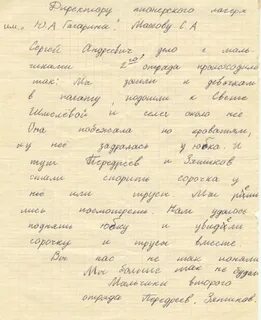 Директору пионерского лагеря
им. "Ю.А Гагарина". Махову С.А
Сергей Андреевич дело с маль-
чиками 2-го отряда происходило
так: Мы зашли к девочкам
в палату, подошли к Свете
Шмелёвой и сели около неё
Она побежала по кроватям,
и у неё задралась юбка. И
тут Передреев и Зятиков
стали спорить сорочка у
неё или трусы Мы реши
лись посмотреть. Нам удалось
поднять юбку и увидели
сорочку и трусы вместе
Вы нас не так поняли
Мы больше так не будем
Мальчики второго
отряда Передреев. Зятиков.